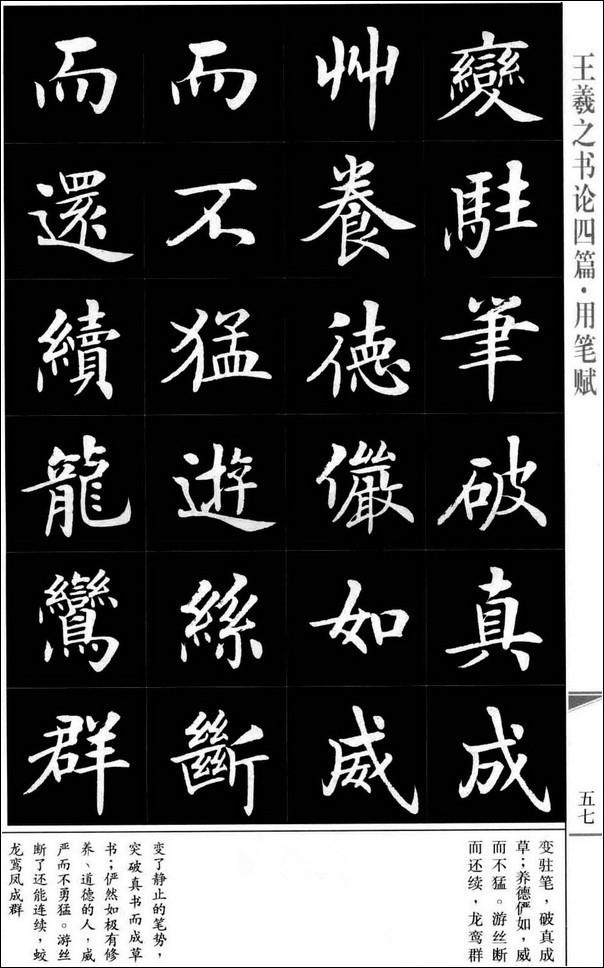 王羲之书论四篇·用笔赋
變駐筆破真成
艸養德儼如威
而不猛遊絲斷
而還續龍鸞群
五七
变驻笔，破真成
草；养德俨如，威
而不猛。游丝断
而还续，龙鸾群
变了静止的笔势，
突破真书而成草
书；俨然如极有修
养、道德的人，威
严而不勇猛。游丝
断了还能连续，蛟
龙鸾凤成群